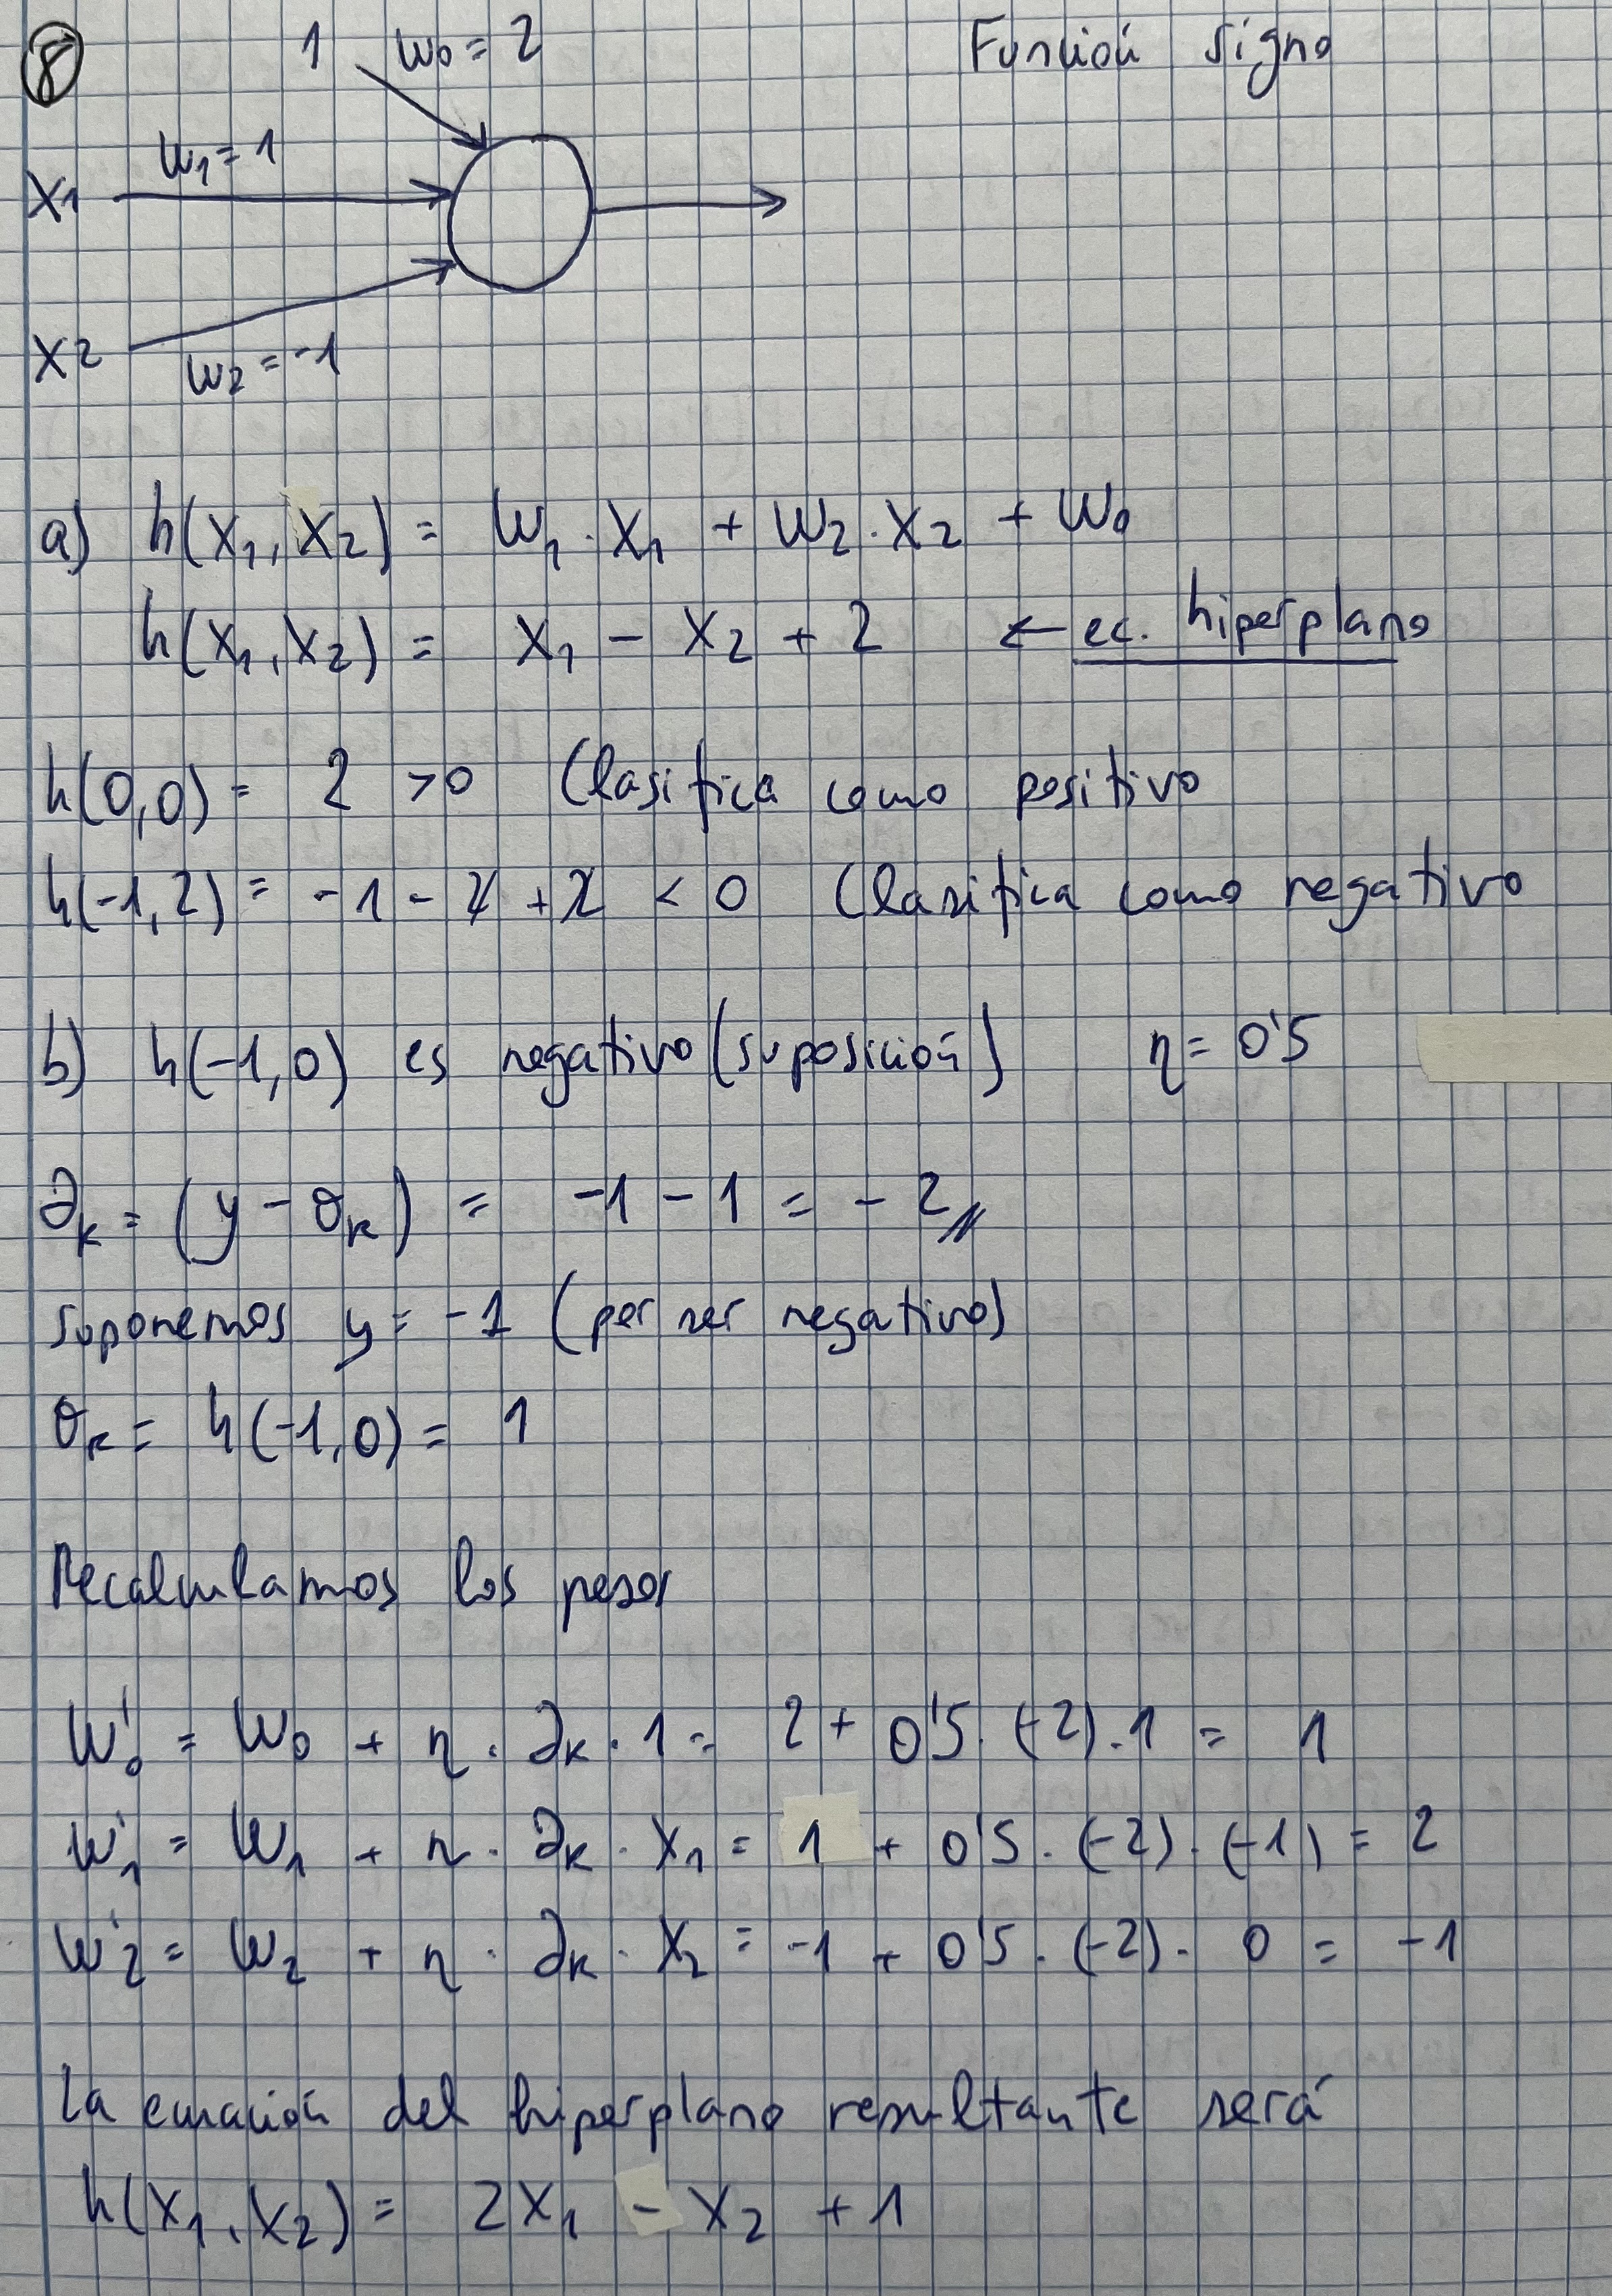 8 1 w0 = 2 Función signo
x1 w1 = 1
x2 w2 = -1
a) h(x1, x2) = w1 · x1 + w2 · x2 + w0
h(x1, x2) = x1 - x2 + 2 ← ec. hiperplano
h(0,0) = 2 >0 Clasifica como positivo
h(-1,2) = -1 - 2 + 2 < 0 Clasifica como negativo
b) h(-1,0) es negativo (suposición) η = 0'5
∂k = (y - σk) = -1 - 1 = -2//
suponemos y = -1 (por ser negativo)
σk = h(-1,0) = 1
Recalculamos los pesos
w'0 = w0 + η · ∂k · 1 = 2 + 0'5 · (-2) · 1 = 1
w'1 = w1 + η · ∂k · x1 = 1 + 0'5 · (-2) · (-1) = 2
w'2 = w2 + η · ∂k · x2 = -1 + 0'5 · (-2) · 0 = -1
La ecuación del hiperplano resultante será
h(x1, x2) = 2x1 - x2 + 1